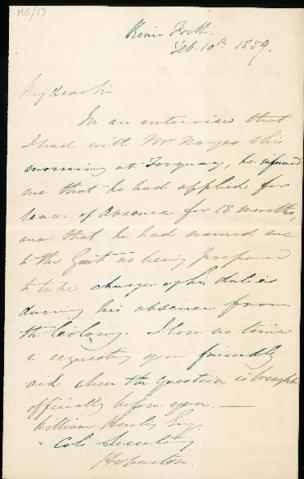 M6/17
River Forth
Feb. 10th 1859.
My dear Sir
In an interview that
I had with Mr this
morning at Torquay, he informed
me that he had applied for
leave of Absence for 18 months,
and that he had named me
to the Govt as being prepared
to take charge of his duties
during his absence from
the Colony. I lose no time
in requesting your friendly
aid when the question is brought
officially before you. —
William Esq
Col. Secretary
Hobarton.